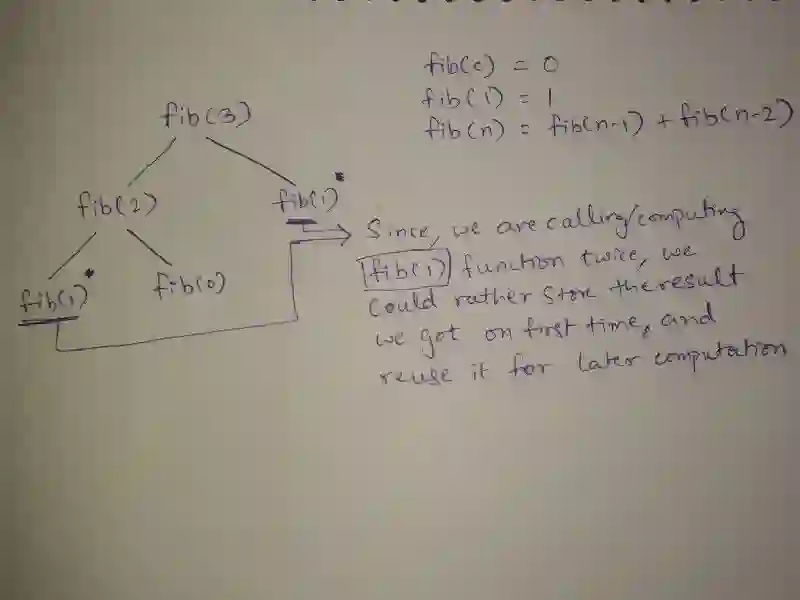 fib(c) = 0
fib(1) = 1
fib(n) = fib(n-1) + fib(n-2)
fib(3)
fib(2)
fib(1)*
fib(1)*
fib(0)
Since, we are calling/computing
fib(1) function twice, we
could rather store the result
we got on first time, and
reuse it for later computation